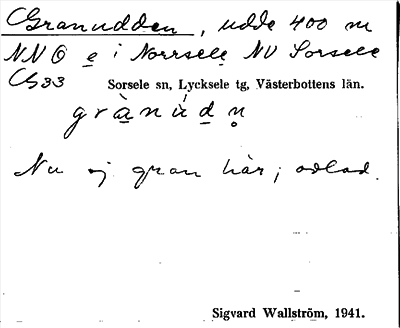 Granudden, udde 400 m
NNO e i Norrsele NV Sorsele
C533 Sorsele sn, Lycksele tg, Västerbottens län.
grànùdn̥
Nu ej gran här; odlad.
Sigvard Wallström, 1941.